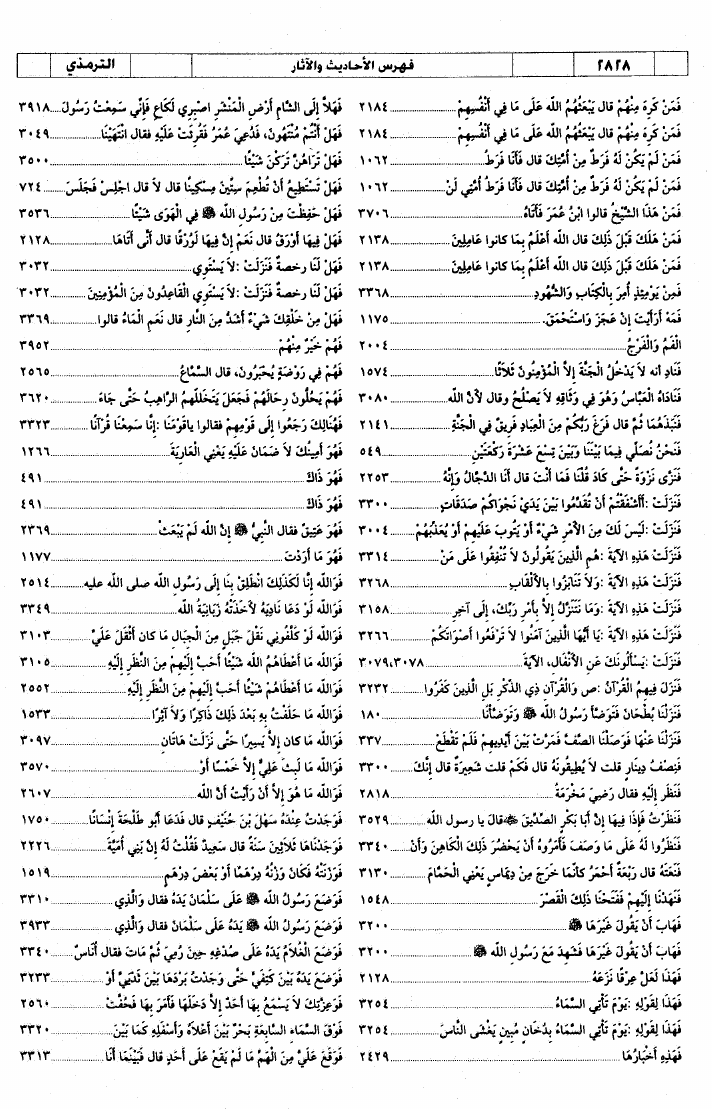 ٢٨٢٨ فهرس الأحاديث والآثار الترمذي
فَمَنْ كَرِهَ مِنْهُمْ قال يَبْعَثُهُمُ الله عَلَى مَا فِي أَنْفُسِهِمْ ٢١٨٤
فَمَنْ كَرِهَ مِنْهُمْ قال يَبْعَثُهُمُ الله عَلَى مَا فِي أَنْفُسِهِمْ ٢١٨٤
فَمَنْ لَمْ يَكُنْ لَهُ فَرَطٌ مِنْ أُمَّتِكَ قال فَأَنَا فَرَطُ ١٠٦٢
فَمَنْ لَمْ يَكُنْ لَهُ فَرَطٌ مِنْ أُمَّتِكَ قال فَأَنَا فَرَطُ أُمَّتِي لَنْ ١٠٦٢
فَمَنْ هَذَا الشَّيْخُ قالوا ابْنُ عُمَرَ فَأَتَاهُ ٣٧٠٦
فَمَنْ هَلَكَ قَبْلَ ذَلِكَ قال الله أَعْلَمُ بِمَا كانوا عَامِلِينَ ٢١٣٨
فَمَنْ هَلَكَ قَبْلَ ذَلِكَ قال الله أَعْلَمُ بِمَا كانوا عَامِلِينَ ٢١٣٨
فَمِنْ يَوْمِئِذٍ أُمِرَ بِالْكِتَابِ وَالشُّهُودِ ٣٣٦٨
فَمَهْ أَرَأَيْتَ إِنْ عَجَزَ وَاسْتَحْمَقَ. ١١٧٥
الْفَمُ وَالْفَرْجُ ٢٠٠٤
فَنَادِ أنه لاَ يَدْخُلُ الْجَنَّةَ إِلاَّ الْمُؤْمِنُونَ ثَلاَثًا ١٥٧٤
فَنَادَاهُ الْعَبَّاسُ وَهُوَ فِي وَثَاقِهِ لاَ يَصْلُحُ وقال لأَنَّ الله ٣٠٨٠
فَنَبَذَهُمَا ثُمَّ قال فَرَغَ رَبُّكُمْ مِنَ الْعِبَادِ فَرِيقٌ فِي الْجَنَّةِ ٢١٤١
فَنَحْنُ نُصَلِّي فِيمَا بَيْنَنَا وَبَيْنَ تِسْعَ عَشْرَةَ رَكْعَتَيْنِ ٥٤٩
فَنَزَى نَزْوَةً حَتَّى كَادَ قُلْنَا فَمَا أَنْتَ قال أَنَا الدَّجَّالُ وَإِنَّهُ ٢٢٥٣
فَنَزَلَتْ :أَأَشْفَقْتُمْ أَنْ تُقَدِّمُوا بَيْنَ يَدَيْ نَجْوَاكُمْ صَدَقَاتٍ ٣٣٠٠
فَنَزَلَتْ :لَيْسَ لَكَ مِنَ الأَمْرِ شَيْءٌ أَوْ يَتُوبَ عَلَيْهِمْ أَوْ يُعَذِّبَهُمْ ٣٠٠٤
فَنَزَلَتْ هَذِهِ الآيَةَ :هُمِ الَّذِينَ يَقُولُونَ لاَ تُنْفِقُوا عَلَى مَنْ ٣٣١٤
فَنَزَلَتْ هَذِهِ الآيَةَ :وَلاَ تَنَابَزُوا بِالأَلْقَابِ ٣٢٦٨
فَنَزَلَتْ هَذِهِ الآيَةَ :وَمَا نَتَنَزَّلُ إِلاَّ بأَمْرِ رَبِّكَ، إِلَى آخِرِ ٣١٥٨
فَنَزَلَتْ هَذِهِ الآيَةَ :يَا أَيُّهَا الَّذِينَ آمَنُوا لاَ تَرْفَعُوا أَصْوَاتَكُمْ ٣٢٦٦
فَنَزَلَتْ :يَسْأَلُونَكَ عَنِ الأَنْفَالِ، الآيَةَ ٣٠٧٩،٣٠٧٨
فَنَزَلَ فِيهِمُ الْقُرْآنُ :ص وَالْقُرْآنِ ذِي الذِّكْرِ بَلِ الَّذِينَ كَفَرُوا ٣٢٣٢
فَنَزَلْنَا بُطْحَانَ فَتَوَضَّأَ رَسُولُ الله ﷺ وَتَوَضَّأْنَا ١٨٠
فَنَزَلْنَا عَنْهَا فَوَصَلْنَا الصَّفَّ فَمَرَّتْ بَيْنَ أَيْدِيهِمْ فَلَمْ تَقْطَعْ ٣٣٧
فَنِصْفُ دِينَارٍ قلت لاَ يُطِيقُونَهُ قال فَكَمْ قلت شَعِيرَةٌ قال إِنَّكَ ٣٣٠٠
فَنَظَرَ إِلَيْهِ فقال رَضِيَ مَخْرَمَةُ ٢٨١٨
فَنَظَرْتُ فَإِذَا فِيهَا إِنَّ أَبَا بَكْرٍ الصِّدِّيقَ ﷺ قالَ يا رسول الله ٣٥٢٩
فَنَظَرُوا لَهُ عَلَى مَا وَصَفَ فَأَمَرُوهُ أَنْ يَحْضُرَ ذَلِكَ الْكَاهِنَ وَأَنْ ٣٣٤٠
فَنَعَتَهُ قال رَبْعَةٌ أَحْمَرُ كَأَنَّمَا خَرَجَ مِنْ دِيمَاسٍ يَعْنِي الْحَمَّامَ ٣١٣٠
فَنَهَدْنَا إِلَيْهِمْ فَفَتَحْنَا ذَلِكَ الْقَصْرَ ١٥٤٨
فَهَابَ أَنْ يَقُولَ غَيْرَهَا ﷺ ٣٢٠٠
فَهَابَ أَنْ يَقُولَ غَيْرَهَا فَشَهِدَ مَعَ رَسُولِ الله ﷺ ٣٢٠٠
فَهَذَا لَعَلَّ عِرْقًا نَزَعَهُ ٢١٢٨
فَهَذَا لِقَوْلِهِ :يَوْمَ تَأْتِي السَّمَاءُ ٣٢٥٤
فَهَذَا لِقَوْلِهِ :يَوْمَ تَأْتِي السَّمَاءُ بِدُخَانٍ مُبِينٍ يَغْشَى النَّاسَ ٣٢٥٤
فَهَذِهِ أَخْبَارُهَا ٢٤٢٩
فَهَلاَّ إِلَى الشَّامِ أَرْضِ الْمَنْشَرِ اصْبِرِي لَكَاعِ فَإِنِّي سَمِعْتُ رَسُولَ ٣٩١٨
فَهَلْ أَنْتُمْ مُنْتَهُونَ، فَدُعِيَ عُمَرُ فَقُرِئَتْ عَلَيْهِ فقال انْتَهَيْنَا ٣٠٤٩
فَهَلْ تَرَاهُنَّ تَرَكْنَ شَيْئًا ٣٥٠٠
فَهَلْ تَسْتَطِيعُ أَنْ تُطْعِمَ سِتِّينَ مِسْكِينًا قال لاَ قال اجْلِسْ فَجَلَسَ ٧٢٤
فَهَلْ حَفِظْتَ مِنْ رَسُولِ الله ﷺ فِي الْهَوَى شَيْئًا ٣٥٣٦
فَهَلْ فِيهَا أَوْرَقُ قال نَعَمْ إِنَّ فِيهَا لَوُرْقًا قال أَنَّى أَتَاهَا ٢١٢٨
فَهَلْ لَنَا رخصةٌ فَنَزَلَتْ :لاَ يَسْتَوِي ٣٠٣٢
فَهَلْ لَنَا رخصةٌ فَنَزَلَتْ :لاَ يَسْتَوِي الْقَاعِدُونَ مِنَ الْمُؤْمِنِينَ ٣٠٣٢
فَهَلْ مِنْ خَلْقِكَ شَيْءٌ أَشَدُّ مِنَ النَّارِ قال نَعَمِ الْمَاءُ قالوا ٣٣٦٩
فَهُمْ خَيْرٌ مِنْهُمْ ٣٩٥٢
فَهُمْ فِي رَوْضَةٍ يُحْبَرُونَ، قال السَّمَاعُ ٢٥٦٥
فَهُمْ يَحُلُّونَ رِحَالَهُمْ فَجَعَلَ يَتَخَلَّلُهُمُ الرَّاهِبُ حَتَّى جَاءَ ٣٦٢٠
فَهُنَالِكَ رَجَعُوا إِلَى قَوْمِهِمْ فقالوا ياقَوْمَنَا :إِنَّا سَمِعْنَا قُرْآنًا ٣٣٢٣
فَهُوَ أَمِينُكَ لاَ ضَمَانَ عَلَيْهِ يَعْنِي الْعَارِيَةَ ١٢٦٦
فَهُوَ ذَاكَ ٤٩١
فَهُوَ ذَاكَ ٤٩١
فَهُوَ عَتِيقٌ فقال النَّبِيُّ ﷺ إِنَّ الله لَمْ يَبْعَثْ ٢٣٦٩
فَهُوَ مَا أَرَدْتَ ١١٧٧
فَوَالله إِنَّا لَكَذَلِكَ انْطَلِقْ بِنَا إِلَى رَسُولِ الله صلى الله عليه ٢٥١٤
فَوَالله لَوْ دَعَا نَادِيَهُ لأَخَذَتْهُ زَبَانِيَةُ الله ٣٣٤٩
فَوَالله لَوْ كَلَّفُونِي نَقْلَ جَبَلٍ مِنَ الْجِبَالِ مَا كان أَثْقَلَ عَلَيَّ ٣١٠٣
فَوَالله مَا أَعْطَاهُمُ الله شَيْئًا أَحَبَّ إِلَيْهِمْ مِنَ النَّظَرِ إِلَيْهِ ٣١٠٥
فَوَالله مَا أَعْطَاهُمْ شَيْئًا أَحَبَّ إِلَيْهِمْ مِنَ النَّظَرِ إِلَيْهِ ٢٥٥٢
فَوَالله مَا حَلَفْتُ بِهِ بَعْدَ ذَلِكَ ذَاكِرًا وَلاَ آثِرًا ١٥٣٣
فَوَالله مَا كان إِلاَّ يَسِيرًا حَتَّى نَزَلَتْ هَاتَانِ ٣٠٩٧
فَوَالله مَا لَبِثَ عَلِيٌّ إِلاَّ خَمْسًا أَوْ ٣٥٧٠
فَوَالله مَا هُوَ إِلاَّ أَنْ رَأَيْتُ أَنَّ الله ٢٦٠٧
فَوَجَدْتُ عِنْدَهُ سَهْلَ بْنَ حُنَيْفٍ قال فَدَعَا أَبُو طَلْحَةَ إِنْسَانًا ١٧٥٠
فَوَجَدْنَاهَا ثَلاَثِينَ سَنَةً قال سَعِيدٌ فَقُلْتُ لَهُ إِنَّ بَنِي أُمَيَّةَ ٢٢٢٦
فَوَزَنَتْهُ فَكَانَ وَزْنُهُ دِرْهَمًا أَوْ بَعْضَ دِرْهَمٍ ١٥١٩
فَوَضَعَ رَسُولُ الله ﷺ عَلَى سَلْمَانَ يَدَهُ فقال وَالَّذِي ٣٣١٠
فَوَضَعَ رَسُولُ الله ﷺ يَدَهُ عَلَى سَلْمَانَ فقال وَالَّذِي ٣٩٣٣
فَوَضَعَ الْغُلاَمُ يَدَهُ عَلَى صُدْغِهِ حِينَ رُمِيَ ثُمَّ مَاتَ فقال أُنَاسٌ ٣٣٤٠
فَوَضَعَ يَدَهُ بَيْنَ كَتِفَيَّ حَتَّى وَجَدْتُ بَرْدَهَا بَيْنَ ثَدْيَيَّ أَوْ ٣٢٣٣
فَوَعِزَّتِكَ لاَ يَسْمَعُ بِهَا أَحَدٌ إِلاَّ دَخَلَهَا فَأَمَرَ بِهَا فَحُفَّتْ ٢٥٦٠
فَوْقَ السَّمَاءِ السَّابِعَةِ بَحْرٌ بَيْنَ أَعْلاَهُ وَأَسْفَلِهِ كَمَا بَيْنَ ٣٣٢٠
فَوَقَعَ عَلَيَّ مِنَ الْهَمِّ مَا لَمْ يَقَعْ عَلَى أَحَدٍ قال فَبَيْنَمَا أَنَا ٣٣١٣